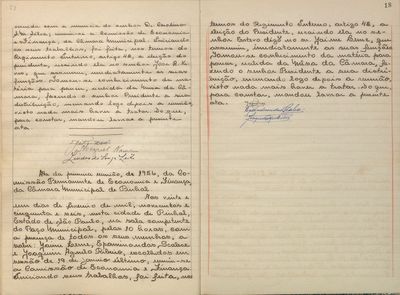 reunião com a presença do senhor D.
da Silva, reuniu-se a Comissão de Economia
e Finança, da Câmara Municipal. Iniciando
os seus trabalhos, foi feita, nos termos do
Regimento Interno, artigo 48, a eleição do
Presidente,
vo, que assumiu, imediatamente as suas
funções. Tomou-se conhecimento da ma-
téria para parecer, recebida da Mesa da Câ-
mara, fazendo o senhor Presidente a sua
distribuição, marcando logo depois a reunião,
visto nada mais haver a tratar. Do que,
para constar, mandou lavrar a presente
ata.
Ata da primeira reunião, de 1956, da Co-
missão Permanente de Economia e Finança,
da Câmara Municipal de Pinhal.
Aos vinte e
um dias de janeiro de mil, novecentos e
cinquenta e seis, nesta cidade de Pinhal,
Estado de São Paulo, na sala competente
do Paço Municipal, pelas 20 horas, com
a presença de todos os seus membros, a
saber: Jayme Leme, Epaminondas
e Joaquim Ribeiro, escolhidos em
sessão de 19 de janeiro último, reuniu-se
a Comissão de Economia e Finança.
Iniciando seus trabalhos, foi feita, nos
18
termos do Regimento Interno, artigo 48, a
eleição do Presidente, recaindo ela, no se-
nhor Jayme Leme, que
assumiu, imediatamente as suas funções.
Tomou-se conhecimento da matéria para
parecer, recebida da Mesa da Câmara, fa-
zendo o senhor Presidente a sua distri-
buição, marcando logo depois a reunião,
visto nada mais haver a tratar. Do que,
para constar, mandou lavrar a presente
ata.